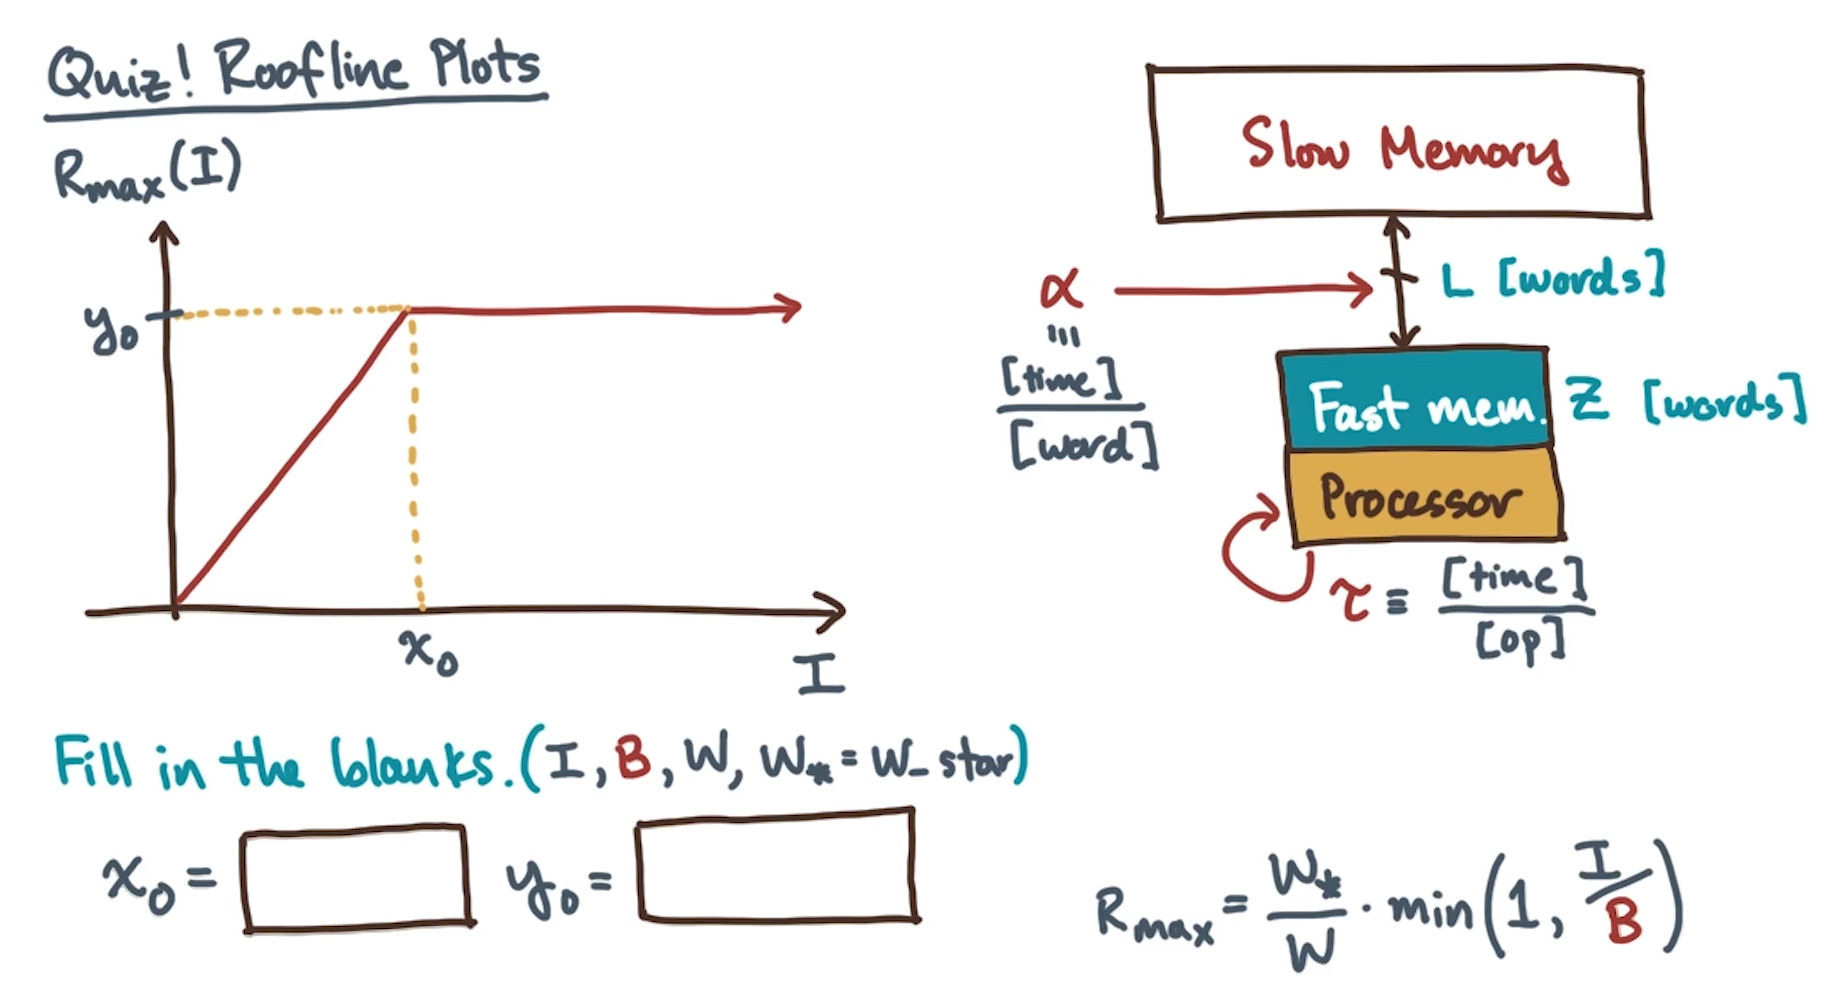 Quiz! Roofline Plots
Rmax(I)
y0
x0
I
Slow Memory
α
≡
[time]
[word]
L [words]
Fast mem.
Z [words]
Processor
τ ≡ [time]
[op]
Fill in the blanks. (I, B, W, W* = W_star)
x0 =
y0 =
Rmax = W*/W · min(1, I/B)